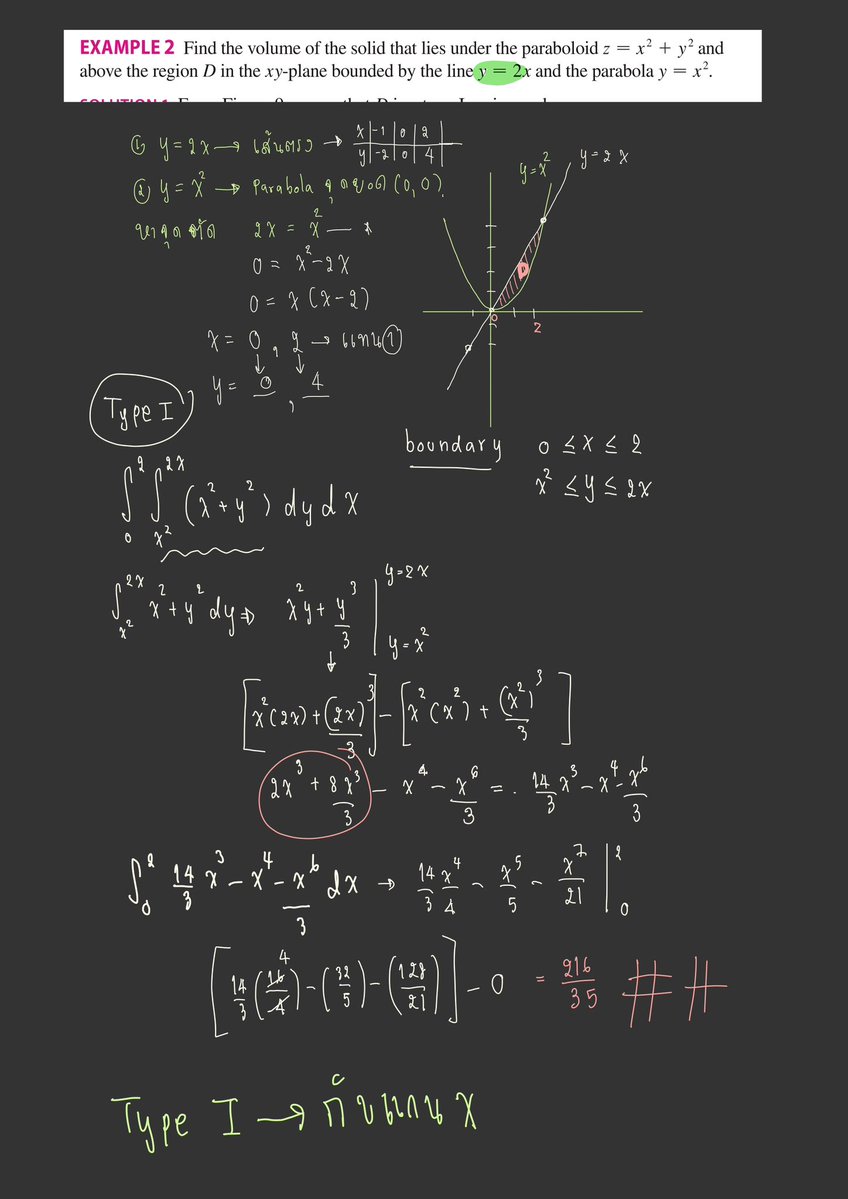 EXAMPLE 2 Find the volume of the solid that lies under the paraboloid z = x² + y² and
above the region D in the xy-plane bounded by the line y = 2x and the parabola y = x².
① y = 2x → เส้นตรง → x | -1 | 0 | 2
y | -2 | 0 | 4
② y = x² → Parabola จุดยอด (0, 0).
y = x²
y = 2x
หาจุดตัด 2x = x² — *
0 = x² - 2x
0 = x (x - 2)
x = 0 , 2 → แทน ①
y = 0 , 4
D
0
2
Type I
boundary 0 ≤ x ≤ 2
x² ≤ y ≤ 2x
∫₀² ∫_{x²}^{2x} (x² + y²) dy dx
∫_{x²}^{2x} x² + y² dy ⇒ x²y + y³/3 | y = 2x
y = x²
↓
[x²(2x) + (2x)³/3] - [x²(x²) + (x²)³/3]
2x³ + 8x³/3 - x⁴ - x⁶/3 = . 14/3 x³ - x⁴ - x⁶/3
∫₀² 14/3 x³ - x⁴ - x⁶/3 dx → 14/3 x⁴/4 - x⁵/5 - x⁷/21 |₀²
[14/3 (16/4) 4 - (32/5) - (128/21)] - 0 = 216/35 ##
Type I → กับแกน x